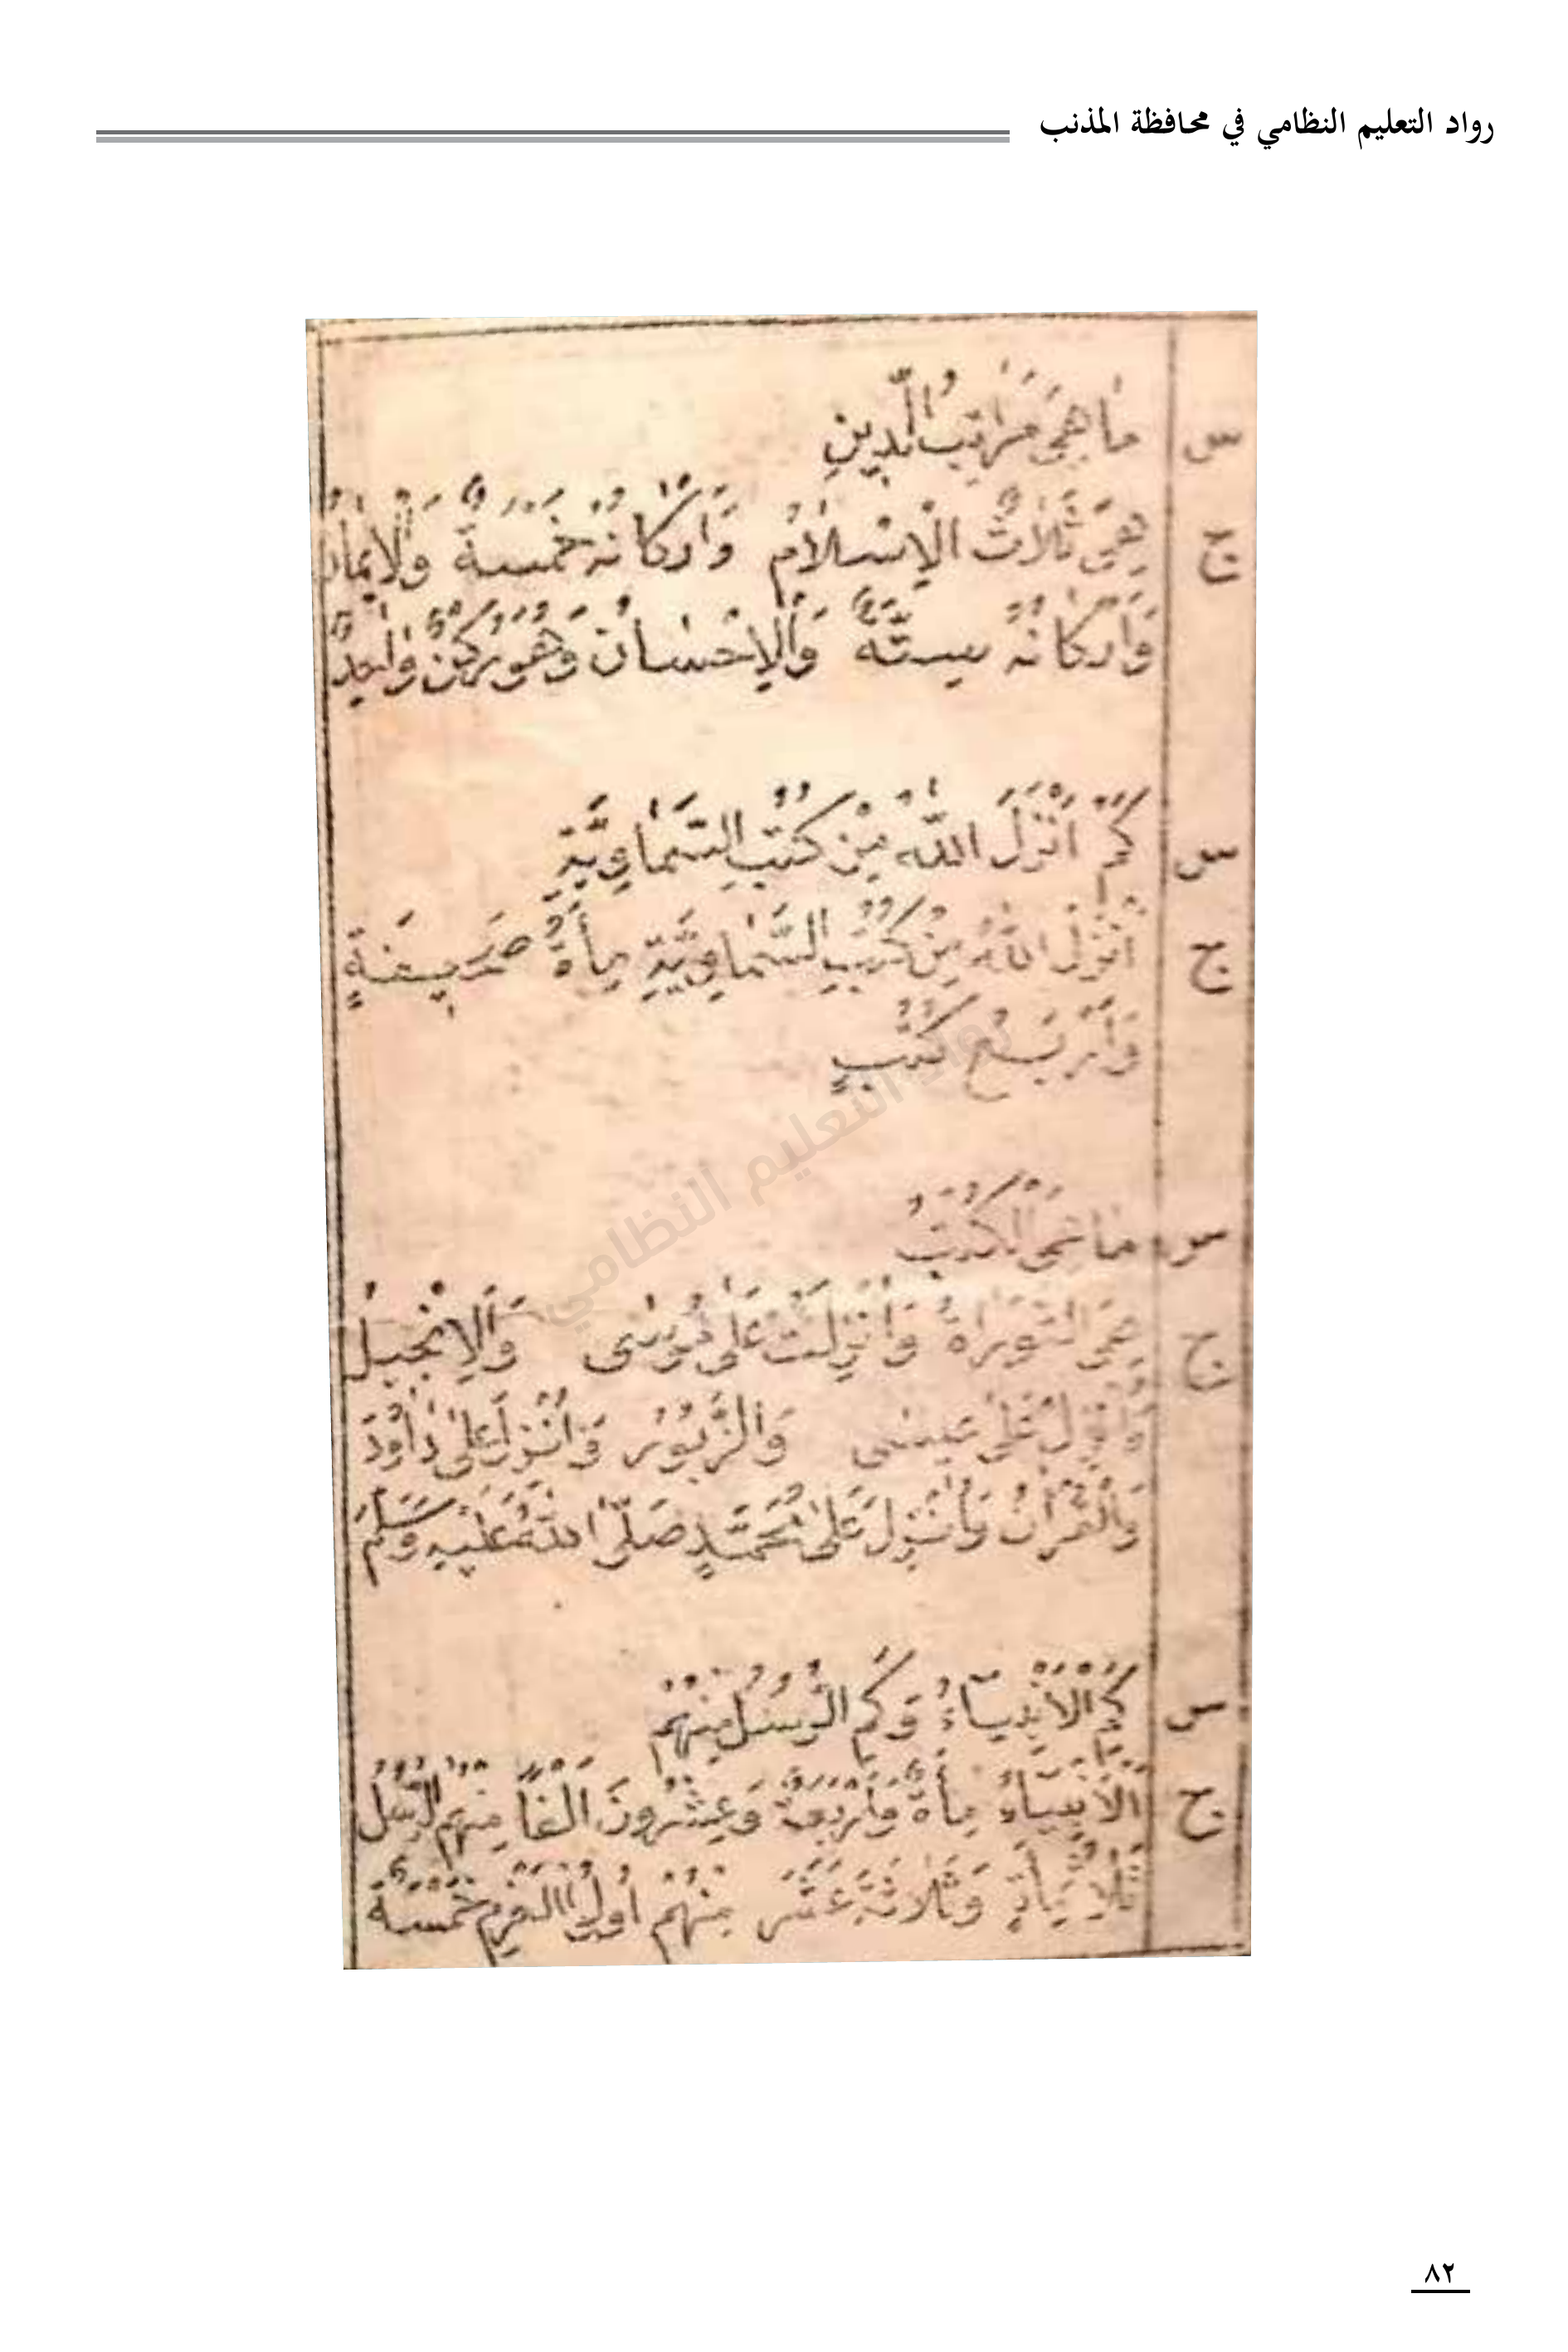 رواد التعليم النظامي في محافظة المذنب
س مَا هِيَ مَرَاتِبُ الدِّينِ
ج هِيَ ثَلَاثٌ الْإِسْلَامُ وَأَرْكَانُهُ خَمْسَةٌ وَالْإِيمَانُ
وَأَرْكَانُهُ سِتَّةٌ وَالْإِحْسَانُ وَهُوَ رُكْنٌ وَاحِدٌ
س كَمْ أَنْزَلَ اللهُ مِنْ كُتُبِ السَّمَاوِيَّةِ
ج أَنْزَلَ اللهُ مِنْ كُتُبِ السَّمَاوِيَّةِ مِأَةُ صَحِيفَةٍ
وَأَرْبَعُ كُتُبٍ
س مَا هِيَ الْكُتُبُ
ج هِيَ التَّوْرَاةُ وَأُنْزِلَتْ عَلَى مُوسَى وَالْإِنْجِيلُ
وَأُنْزِلَ عَلَى عِيسَى وَالزَّبُورُ وَأُنْزِلَ عَلَى دَاوُدَ
وَالْقُرْآنُ وَأُنْزِلَ عَلَى مُحَمَّدٍ صَلَّى اللهُ عَلَيْهِ وَسَلَّمَ
س كَمِ الْأَنْبِيَاءُ وَكَمِ الرُّسُلُ مِنْهُمْ
ج اَلْأَنْبِيَاءُ مِأَةٌ وَأَرْبَعَةٌ وَعِشْرُونَ أَلْفًا مِنْهُمُ الرُّسُلُ
ثَلَاثُمِأَةٍ وَثَلَاثَةَ عَشَرَ مِنْهُمْ أُولُوا الْعَزْمِ خَمْسَةٌ
رواد التعليم النظامي
٨٢